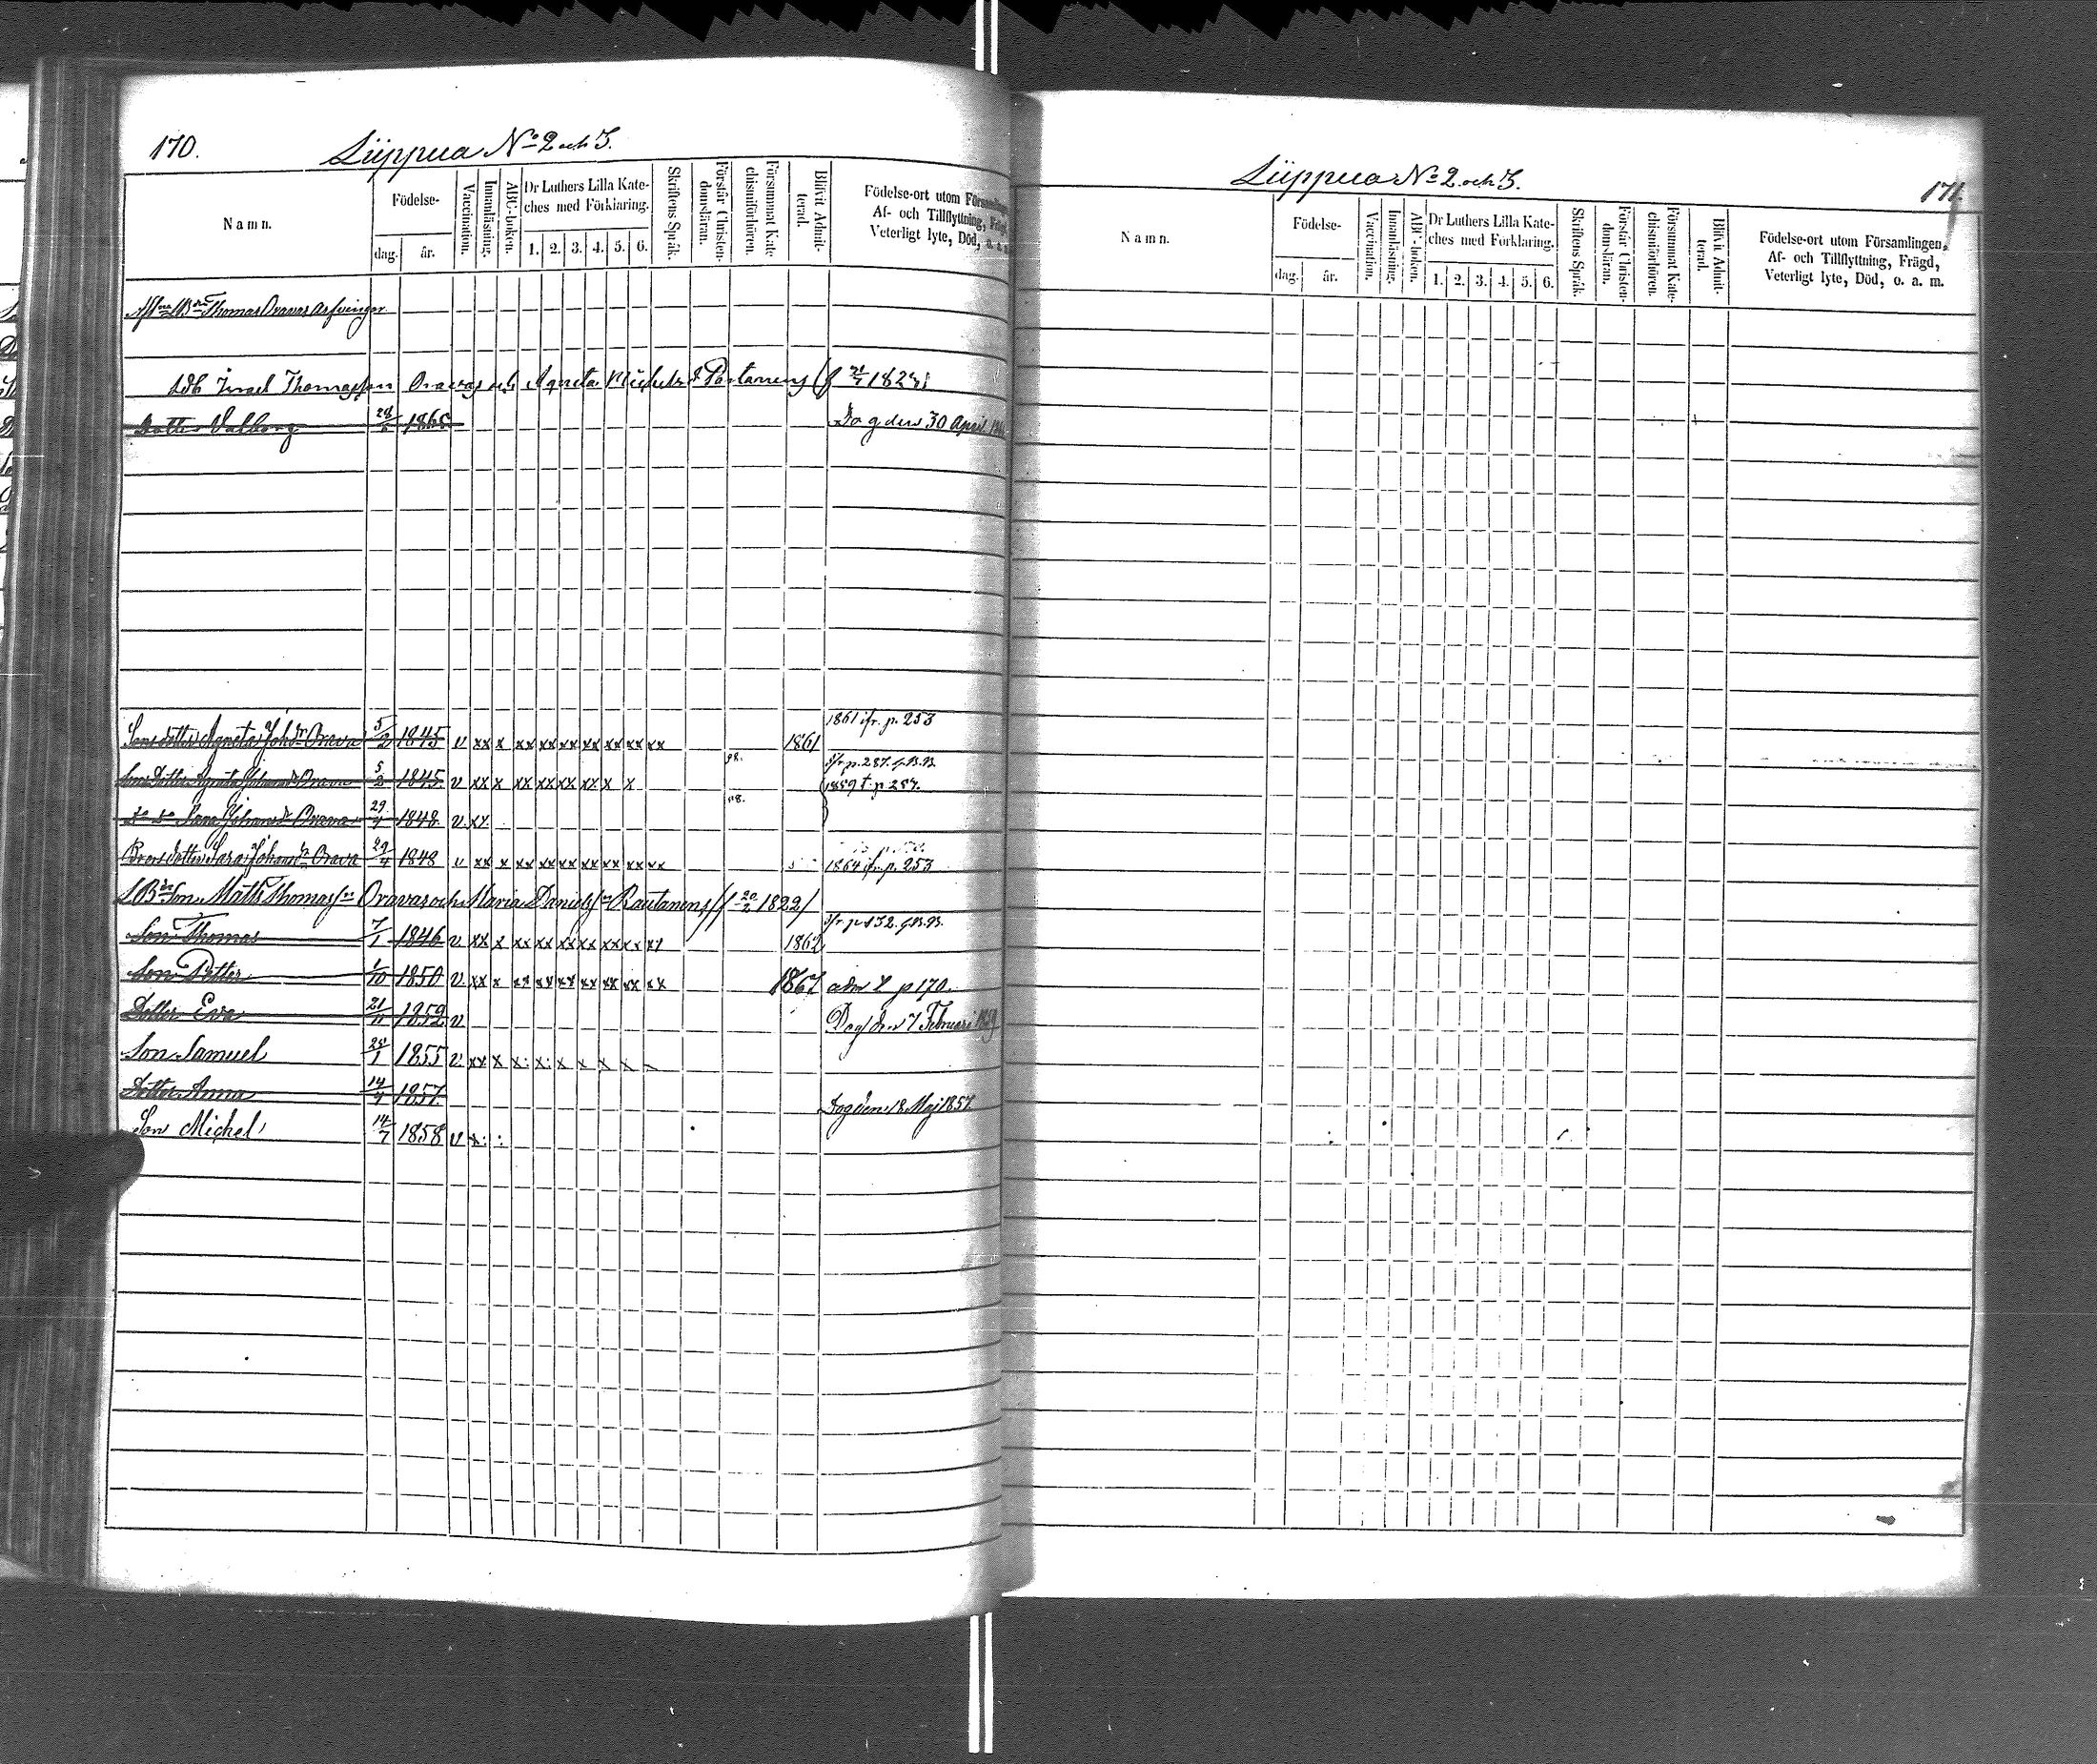 170.
Liippua No 2 och 3.
Namn.
Födelse-
dag.
år.
Vaccination.
Innanläsning.
ABC-boken.
Dr Luthers Lilla Kate-
ches med Förklaring.
1. 2. 3. 4. 5. 6.
Skriftens Språk.
Förstår Christen-
domsläran.
Försummat Kate-
chismiförhören.
Blifvit Admit-
terad.
Födelse-ort utom Församlingen,
Af- och Tillflyttning, Frägd,
Veterligt lyte, Död, o. a. m.
Thomas Oravas Arfvingar
Israel Thomasson Oravas och Agneta Michelsd Partanens
Dotter Valborg 1866 Dog den 30 April
1861 ifr. p. 253
Sonsdotter Agneta Johdr Orava 5/2 1845 v xx x xx xx xx xx xx xx xx 1861
Sons Dotter Agneta Johansdr Orava 5/2 1845 v xx x xx xx xx xx x x 1859 t. p. 257.
do do Sara Johansdr Orava 29/4 1848 v. xx
Brorsdotter Sara Johansdr Orava 29/4 1848 v xx x xx xx xx xx xx xx xx 1864 ifr. p. 253
Son Matts Thomasson Oravas och Maria Danielsdr Rautanens 20/2 1822
Son Thomas 7/1 1846 v. xx x xx xx xx xx xx xx xx 1862
Son Petter 1/10 1850 v. xx x xx xx xx xx xx xx xx 1867 p 170.
Dotter Eva 21/11 1852 v Dog den 7 Februari
Son Samuel 1855 v. xx x x: x: x x x x
Dotter Anna 14/4 1857. Dog den 18 Maj 1857.
Son Michel 14/7 1858 v x:
Liippua No 2 och 3.
171.
Namn.
Födelse-
dag.
år.
Vaccination.
Innanläsning.
ABC-boken.
Dr Luthers Lilla Kate-
ches med Förklaring.
1. 2. 3. 4. 5. 6.
Skriftens Språk.
Förstår Christen-
domsläran.
Försummat Kate-
chismiförhören.
Blifvit Admit-
terad.
Födelse-ort utom Församlingen,
Af- och Tillflyttning, Frägd,
Veterligt lyte, Död, o. a. m.